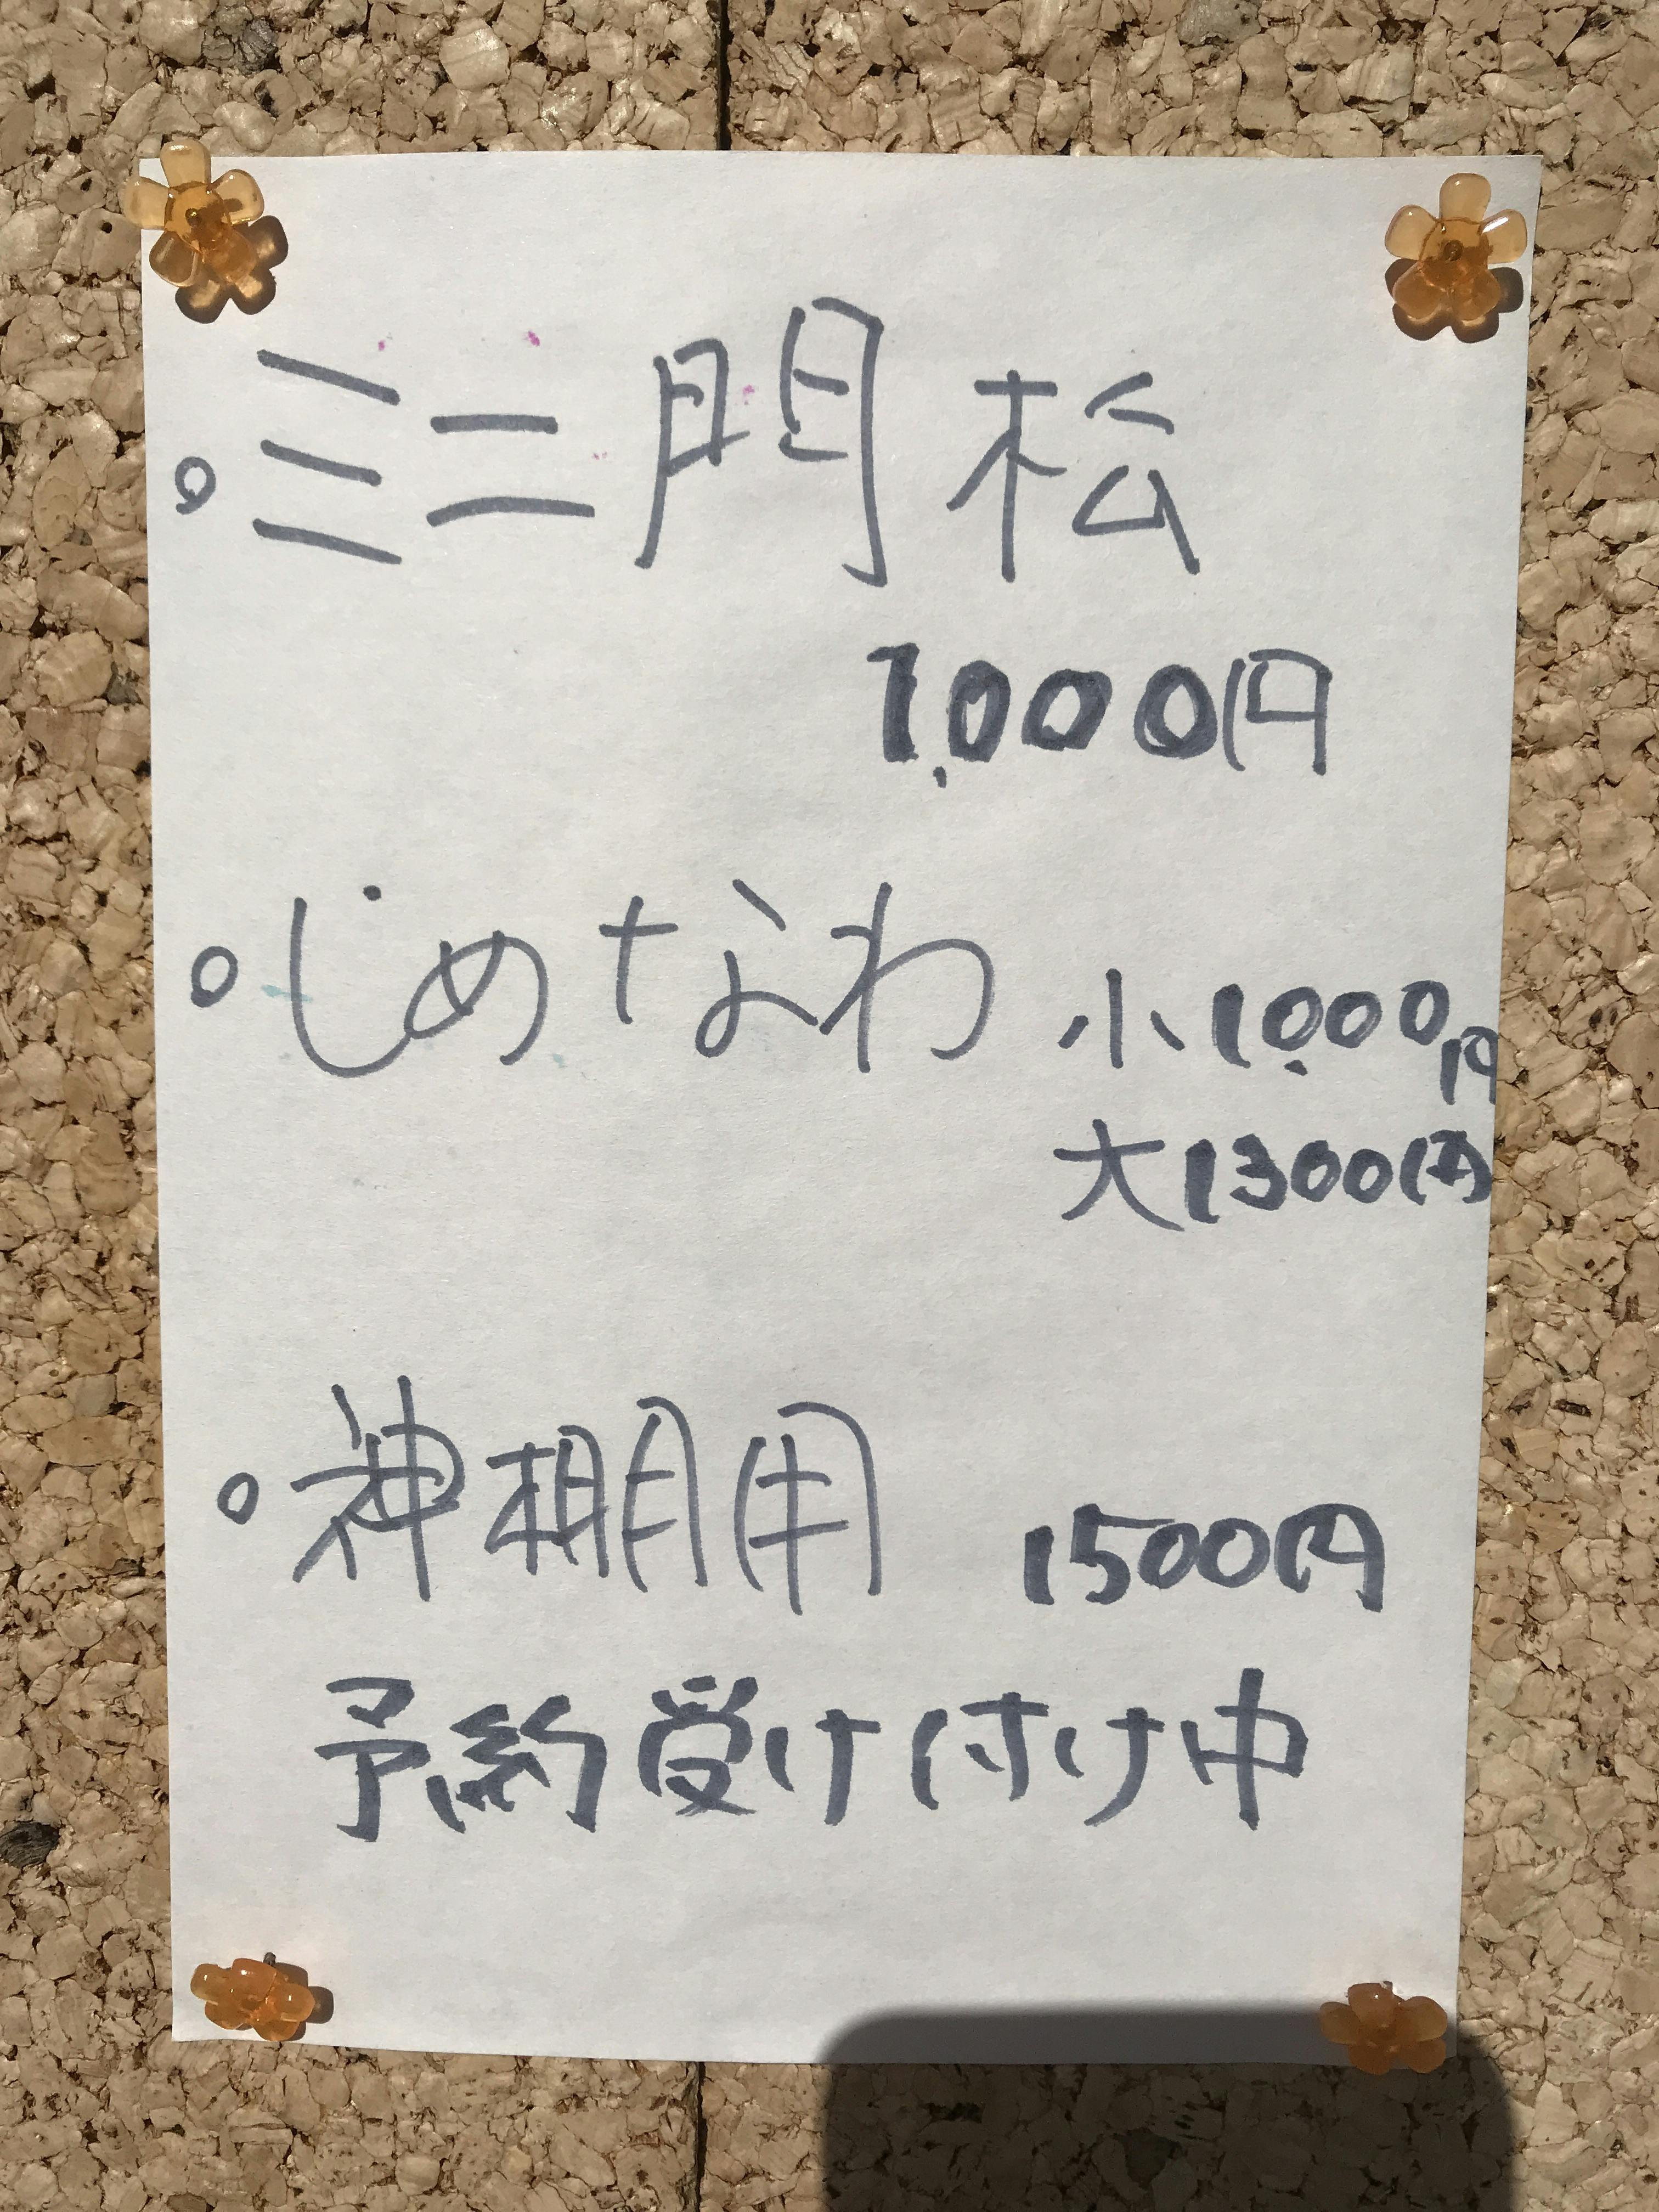 。ミニ門松
1,000円
。じめなわ 小1,000円
大1300円
。神棚用 1500円
予約受け付け中